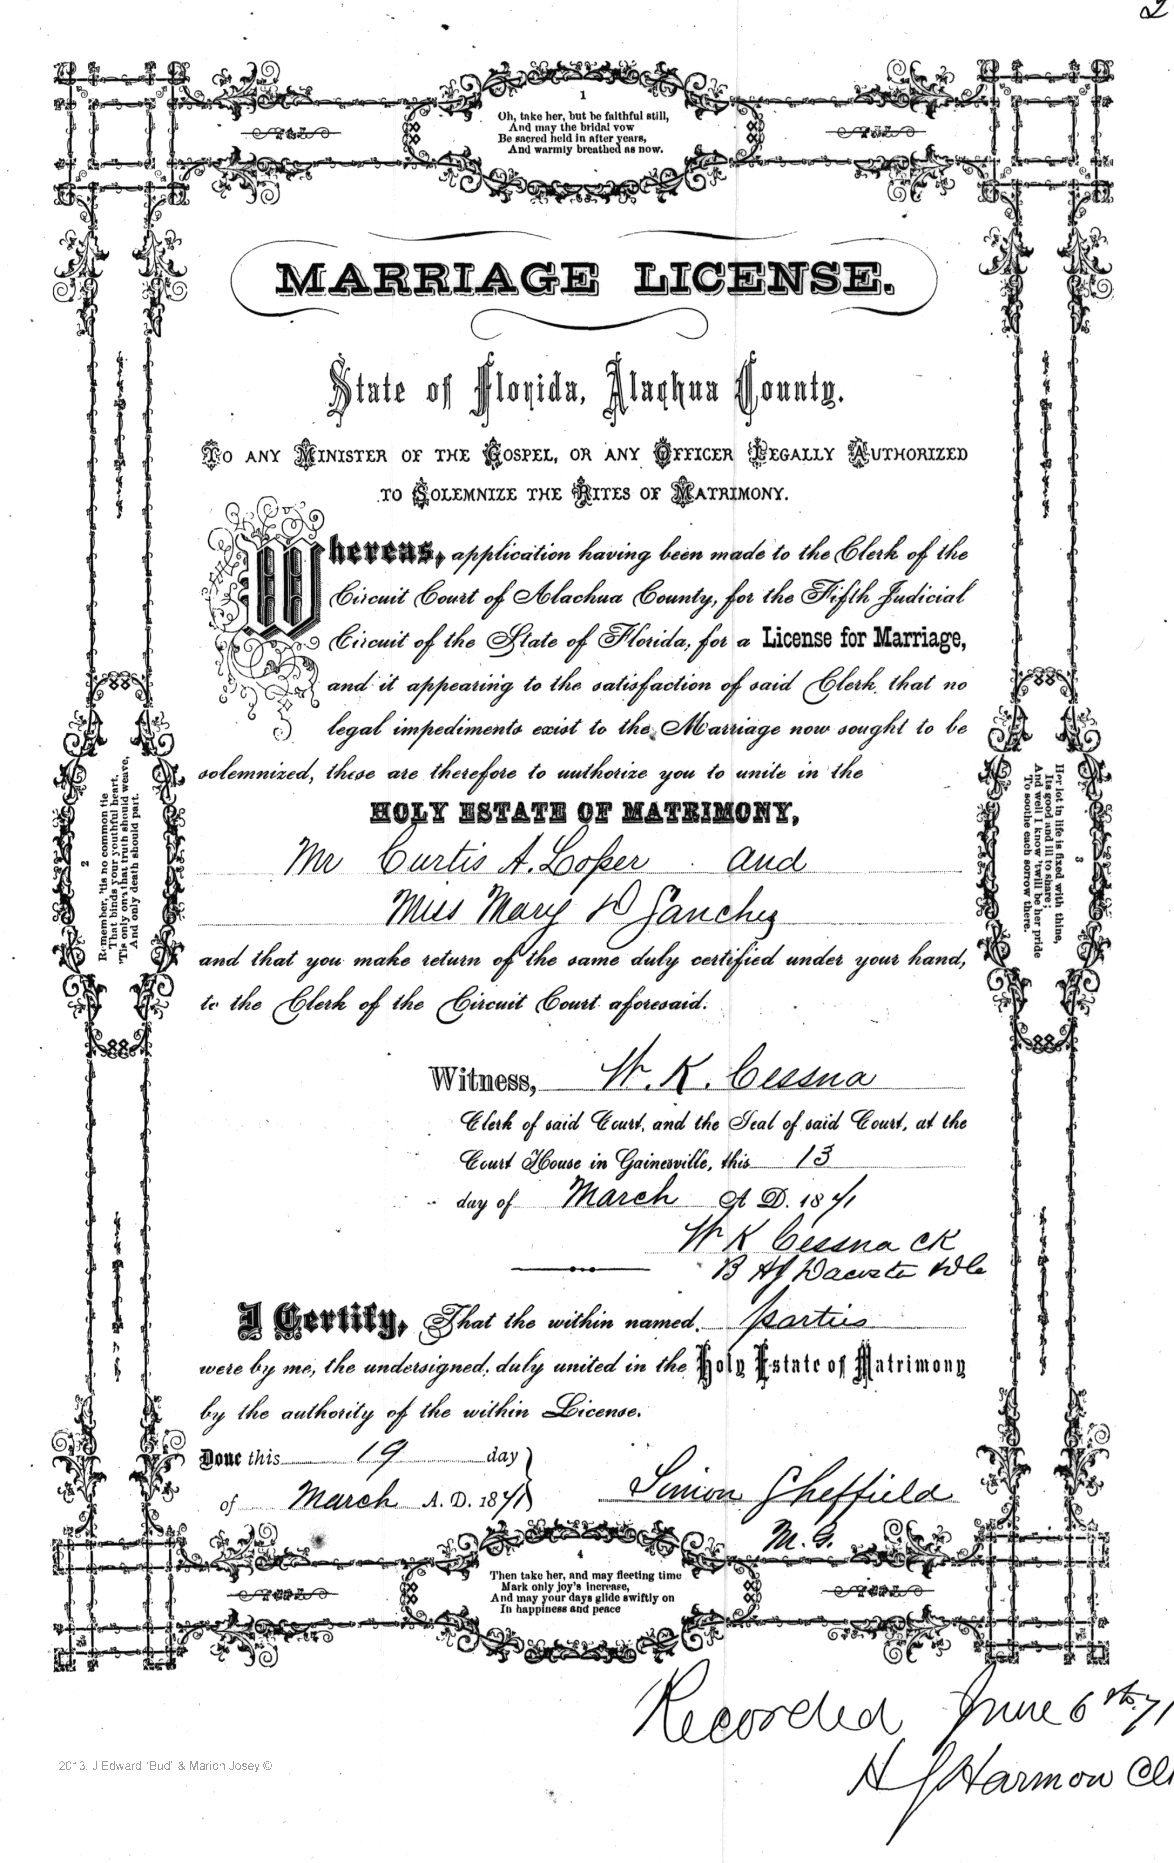 2
1
Oh, take her, but be faithful still,
And may the bridal vow
Be sacred held in after years,
And warmly breathed as now.
MARRIAGE LICENSE.
State of Florida, Alachua County.
TO ANY MINISTER OF THE GOSPEL, OR ANY OFFICER LEGALLY AUTHORIZED
TO SOLEMNIZE THE RITES OF MATRIMONY.
Whereas, application having been made to the Clerk of the
Circuit Court of Alachua County, for the Fifth Judicial
Circuit of the State of Florida, for a License for Marriage,
and it appearing to the satisfaction of said Clerk that no
legal impediments exist to the Marriage now sought to be
solemnized, these are therefore to authorize you to unite in the
HOLY ESTATE OF MATRIMONY,
Mr Curtis A. Loper and
Miss Mary D Sanchez
and that you make return of the same duly certified under your hand,
to the Clerk of the Circuit Court aforesaid.
2
Remember, 'tis no common tie
That binds your youthful heart,
'Tis only one that truth should weave,
And only death should part.
3
Her lot in life is fixed with thine,
Its good and ill to share;
And well I know 'twill be her pride
To soothe each sorrow there.
Witness, W. K. Cessna
Clerk of said Court, and the Seal of said Court, at the
Court House in Gainesville, this 13
day of March A D. 1871
W K Cessna CK
I Certify, That the within named parties
were by me, the undersigned, duly united in the Holy Estate of Matrimony
by the authority of the within License.
Done this 19 day
of March A. D. 1871
Simon Sheffield
M. G.
4
Then take her, and may fleeting time
Mark only joy's increase,
And may your days glide swiftly on
In happiness and peace
Recorded June 6th 71
H J Harmon Cl
2013. J Edward 'Bud' & Marion Josey ©